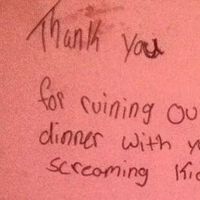 Thank you
for ruining Ou
dinner with y
screaming Ki